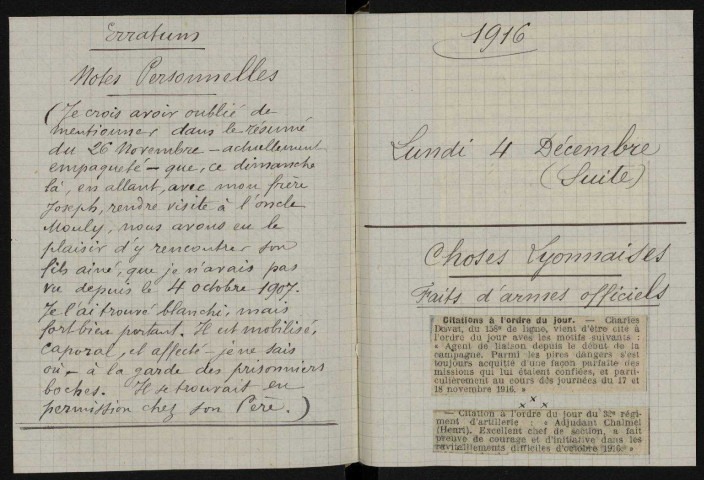 Erratums
Notes Personnelles
(Je crois avoir oublié de
mentionner dans le résumé
du 26 Novembre - actuellement
empaqueté - que, ce dimanche
là, en allant, avec mon frère
Joseph, rendre visite à l'oncle
Mouly, nous avons eu le
plaisir d'y rencontrer son
fils aîné, que je n'avais pas
vu depuis le 4 octobre 1907.
Je l'ai trouvé blanchi, mais
fort bien portant. Il est mobilisé,
caporal, et affecté - je ne sais
où - à la garde des prisonniers
boches. Il se trouvait en
permission chez son Père.)
1916
Lundi 4 Décembre
(Suite)
Choses Lyonnaises
Faits d'armes officiels
Citations à l'ordre du jour. — Charles
Davat, du 158e de ligne, vient d'être cité à
l'ordre du jour avec les motifs suivants :
« Agent de liaison depuis le début de la
campagne. Parmi les pires dangers s'est
toujours acquitté d'une façon parfaite des
missions qui lui étaient confiées, et parti-
culièrement au cours des journées du 17 et
18 novembre 1916. »
x x x
— Citation à l'ordre du jour du 32e régi-
ment d'artillerie : « Adjudant Chalmel
(Henri). Excellent chef de section, a fait
preuve de courage et d'initiative dans les
ravitaillements difficiles d'octobre 1916. »